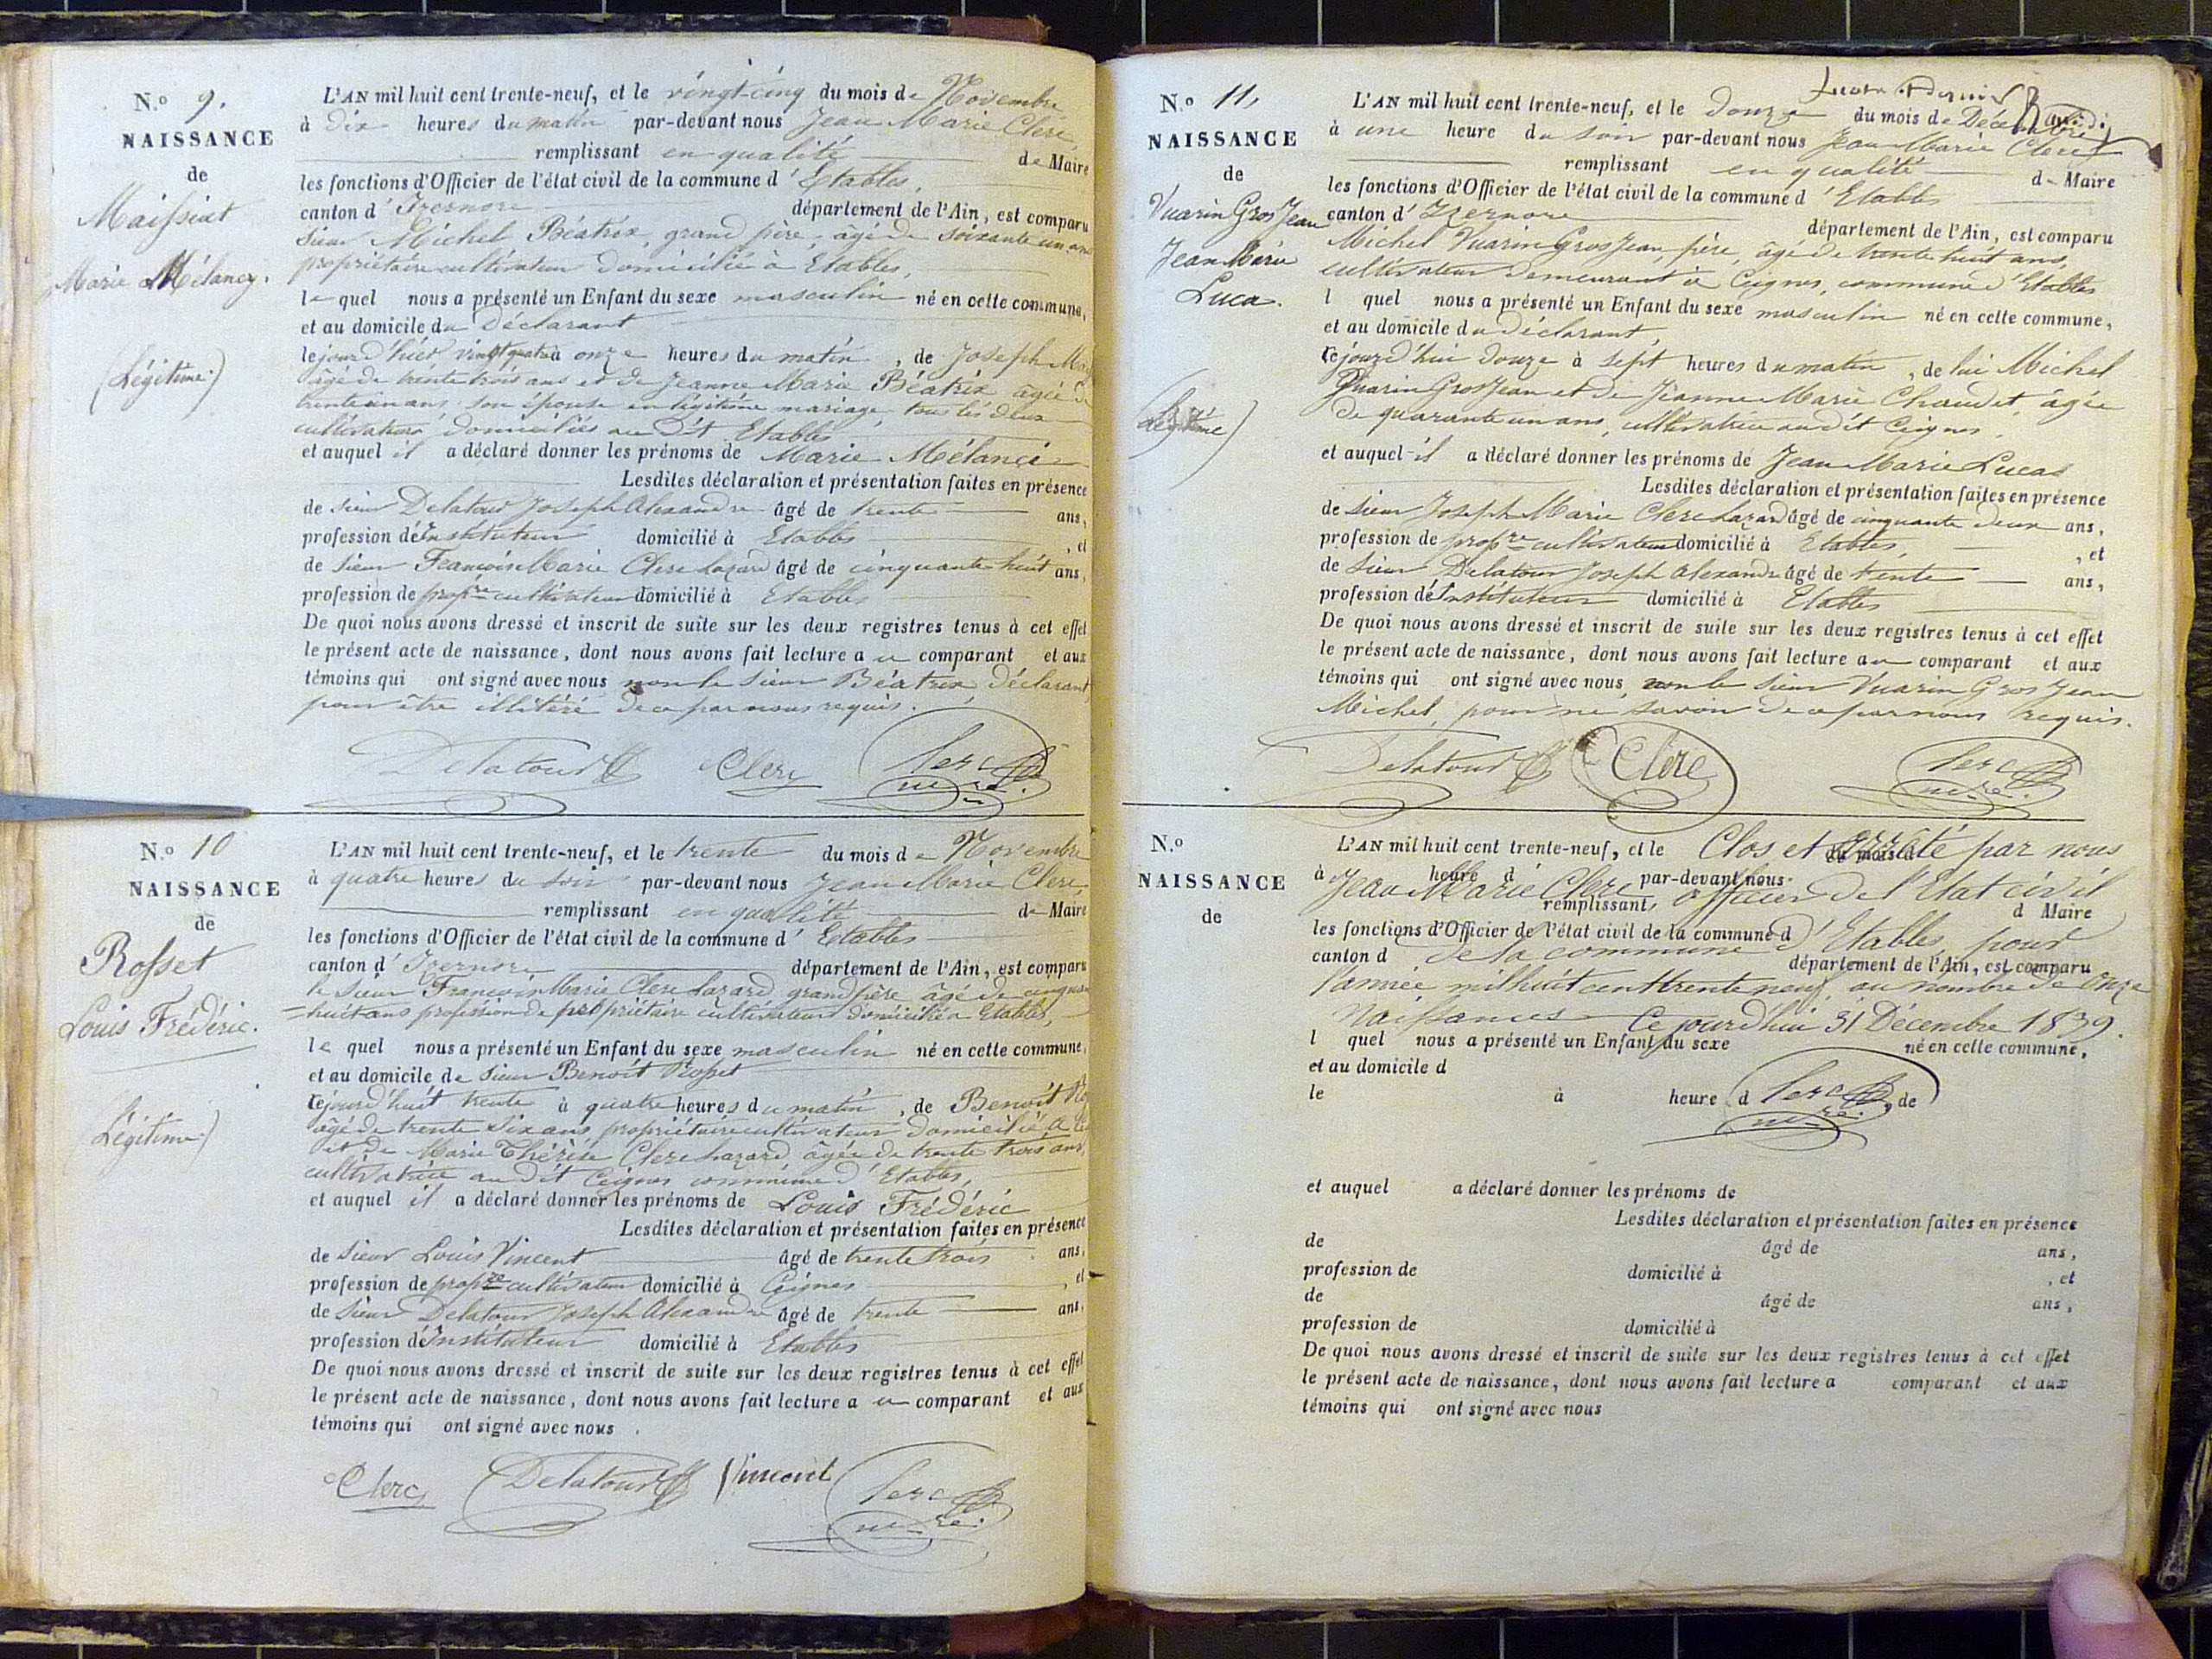 N.o 9.
NAISSANCE
de
Maissiat
Marie Mélancy.
(Légitime)
L'AN mil huit cent trente-neuf, et le vingt-cinq du mois de Novembre
à Dix heures du matin par-devant nous Jean Marie Clerc
remplissant en qualité de Maire
les fonctions d'Officier de l'état civil de la commune d'Etables,
canton d'Izernore département de l'Ain, est comparu
Sieur Michel Béatrix, grand père, âgé de soixante un ans
propriétaire cultivateur domicilié à Etables,
le quel nous a présenté un Enfant du sexe masculin né en cette commune,
et au domicile du Déclarant
le jour d'hier vingt quatre à onze heures du matin, de Joseph
âgé de trente trois ans et de Jeanne Marie Béatrix âgée de
trente un ans son épouse en légitime mariage, tous les deux
cultivateurs domiciliés au dit Etables
et auquel il a déclaré donner les prénoms de Marie Mélancie
Lesdites déclaration et présentation faites en présence
de Sieur Delatour Joseph Alexandre âgé de trente ans,
profession d'Instituteur domicilié à Etables, et
de Sieur François Marie Clerc Lazard âgé de cinquante huit ans,
profession de propre cultivateur domicilié à Etables
De quoi nous avons dressé et inscrit de suite sur les deux registres tenus à cet effet
le présent acte de naissance, dont nous avons fait lecture au comparant et aux
témoins qui ont signé avec nous non le Sieur Béatrix, Déclarant
pour être illitéré de ce par nous requis.
Delatour Clerc Clerc mre.
N.o 10
NAISSANCE
de
Rosset
Louis Frédéric.
Légitime)
L'AN mil huit cent trente-neuf, et le trente du mois de Novembre
à quatre heures du soir par-devant nous Jean Marie Clerc
remplissant en qualité de Maire
les fonctions d'Officier de l'état civil de la commune d'Etables
canton d'Izernore département de l'Ain, est comparu
le Sieur François Marie Clerc Lazard grand père âgé de cinquan
=huit ans profession de propriétaire cultivateur domicilié à Etables,
le quel nous a présenté un Enfant du sexe masculin né en cette commune,
et au domicile de Sieur Benoît Rosset
cejourd'huit trente à quatre heures du matin, de Benoît Ro
âgé de trente six ans propriétaire cultivateur domicilié à
et de Marie Thérèse Clerc Lazard âgée de trente trois ans,
cultivatrice au dit Ceignes commune d'Etables,
et auquel il a déclaré donner les prénoms de Louis Frédéric
Lesdites déclaration et présentation faites en présence
de Sieur Louis Vincent âgé de trente trois ans,
profession de propre cultivateur domicilié à Ceignes, et
de Sieur Delatour Joseph Alexandre âgé de trente ans,
profession d'Instituteur domicilié à Etables
De quoi nous avons dressé et inscrit de suite sur les deux registres tenus à cet effet
le présent acte de naissance, dont nous avons fait lecture au comparant et aux
témoins qui ont signé avec nous.
Clerc Delatour Vincent Clerc mre.
N.o 11,
NAISSANCE
de
Vuarin GrosJean
Jean Marie
Luca.
(Légitime)
L'AN mil huit cent trente-neuf, et le Douze du mois de Décembre
à une heure du soir par-devant nous Jean Marie Clerc
remplissant en qualité de Maire
les fonctions d'Officier de l'état civil de la commune d'Etables
canton d'Izernore département de l'Ain, est comparu
Michel Vuarin GrosJean, père, âgé de trente huit ans,
cultivateur demeurant à Ceignes, commune d'Etables
l quel nous a présenté un Enfant du sexe masculin né en cette commune,
et au domicile du déclarant,
cejourd'hui douze à sept heures du matin, de lui Michel
Vuarin GrosJean et de Jeanne Marie Chaudet, âgée
de quarante un ans, cultivatrice au dit Ceignes,
et auquel il a déclaré donner les prénoms de Jean Marie Lucas
Lesdites déclaration et présentation faites en présence
de Sieur Joseph Marie Clerc Lazard âgé de cinquante deux ans,
profession de propre cultivateur domicilié à Etables, et
de Sieur Delatour Joseph Alexandre âgé de trente ans,
profession d'Instituteur domicilié à Etables
De quoi nous avons dressé et inscrit de suite sur les deux registres tenus à cet effet
le présent acte de naissance, dont nous avons fait lecture au comparant et aux
témoins qui ont signé avec nous, non le Sieur Vuarin GrosJean
Michel, pour ne savoir de ce par nous requis.
Delatour Clerc Clerc mre.
N.o
NAISSANCE
de
L'AN mil huit cent trente-neuf, et le du mois d
Clos et arrêté par nous
à heure d par-devant nous
Jean Marie Clerc, officier de l'Etat civil
remplissant d Maire
les fonctions d'Officier de l'état civil de la commune d
de la commune d'Etables, pour
canton d département de l'Ain, est comparu
l'année mil huit cent trente neuf, au nombre de Onze
Naissances Ce jourd'hui 31 Décembre 1839.
l quel nous a présenté un Enfant du sexe né en cette commune,
et au domicile d
le à heure d , de
Clerc mre.
et auquel a déclaré donner les prénoms de
Lesdites déclaration et présentation faites en présence
de âgé de ans,
profession de domicilié à , et
de âgé de ans,
profession de domicilié à
De quoi nous avons dressé et inscrit de suite sur les deux registres tenus à cet effet
le présent acte de naissance, dont nous avons fait lecture a comparant et aux
témoins qui ont signé avec nous